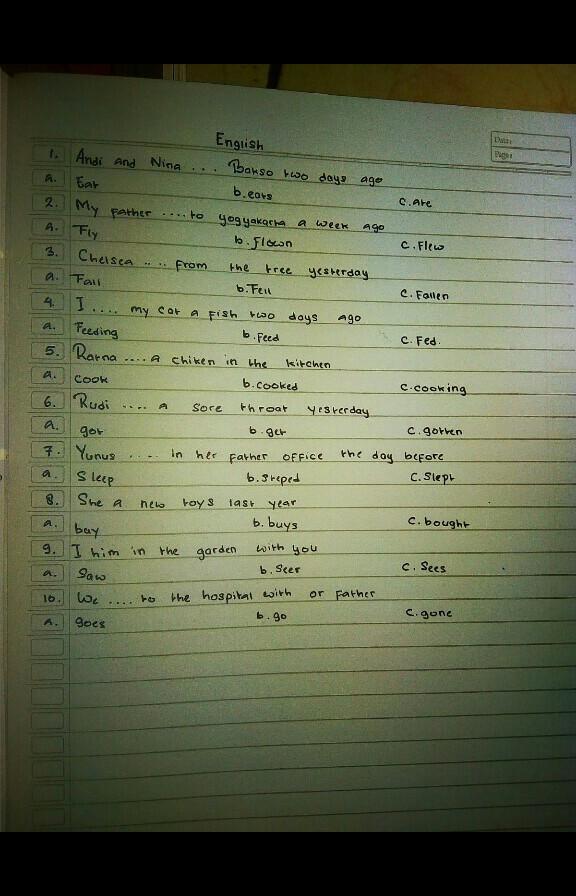 English
Date:
Page:
1. Andi and Nina ... Bakso two days ago
a. Eat b. eats c. Ate
2. My father .... to yogyakarta a week ago
a. Fly b. flown c. Flew
3. Chelsea .... From the tree yesterday
a. Fall b. Fell c. Fallen
4. I .... my cat a fish two days ago
a. Feeding b. Feed c. Fed.
5. Ratna .... a chiken in the kitchen
a. cook b. cooked c. cooking
6. Rudi .... a sore throat yesterday
a. got b. get c. gotten
7. Yunus .... in her father office the day before
a. Sleep b. Sleped c. Slept
8. She a new toys last year
a. buy b. buys c. bought
9. I him in the garden with you
a. Saw b. Seer c. Sees
10. We .... to the hospital with or father
a. goes b. go c. gone